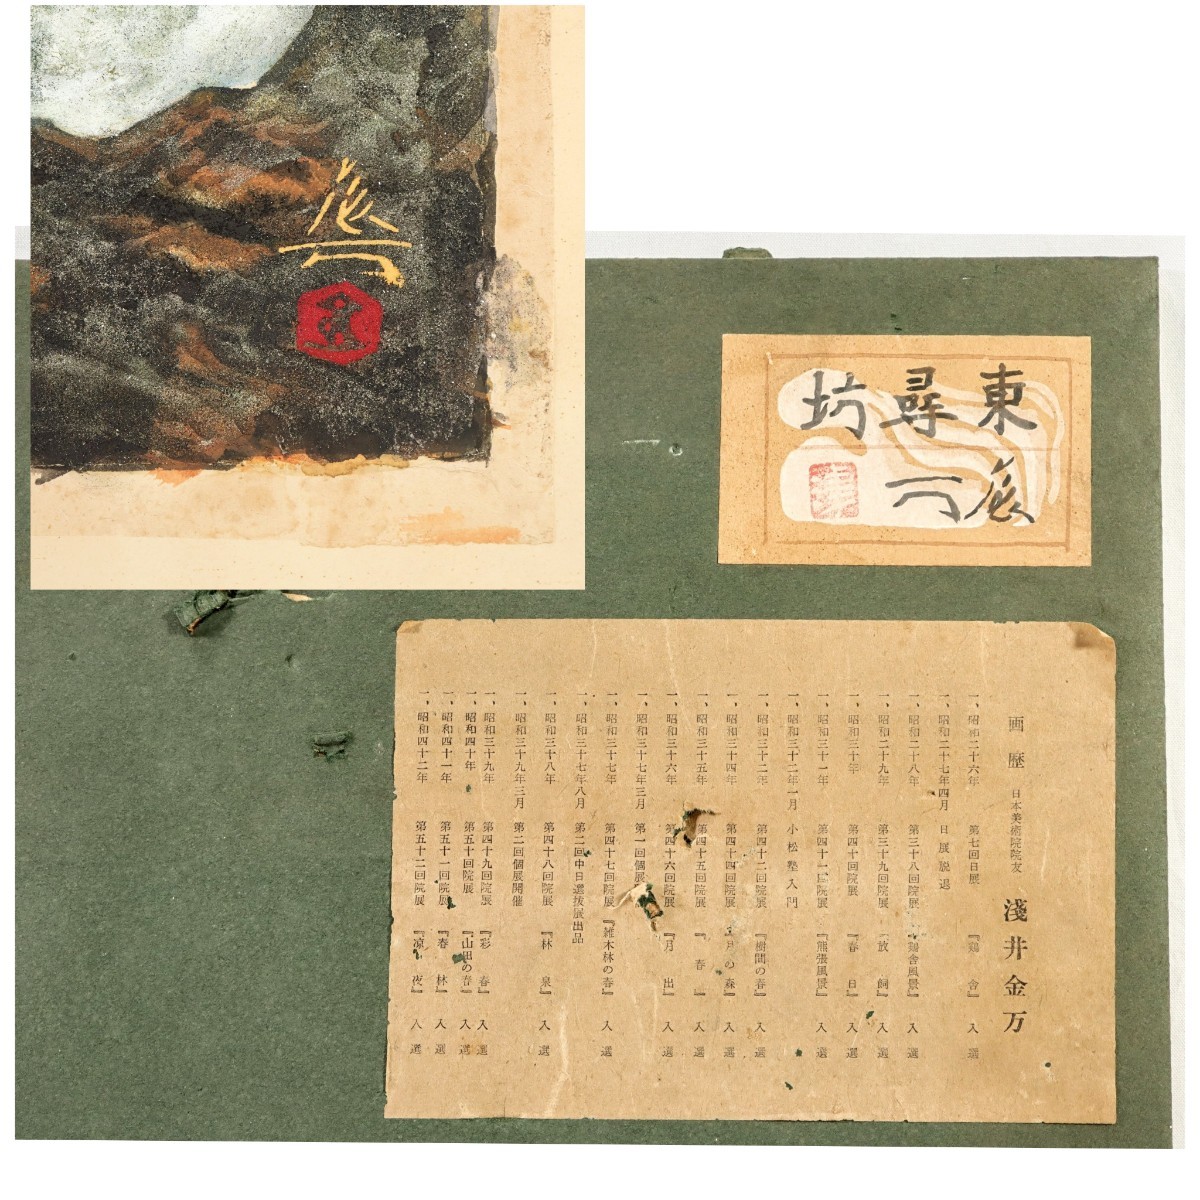 東尋坊
画歴 日本美術院院友 淺井金万
一、昭和二十六年 第七回日展 『鶏舎』 入選
一、昭和二十七年四月 日展脱退
一、昭和二十八年 第三十八回院展 『鶏舎風景』 入選
一、昭和二十九年 第三十九回院展 『放飼』 入選
一、昭和三十年 第四十回院展 『春日』 入選
一、昭和三十一年 第四十一回院展 『熊張風景』 入選
一、昭和三十二年一月 小松塾入門
一、昭和三十二年 第四十二回院展 『樹間の春』 入選
一、昭和三十四年 第四十四回院展 月の森』 入選
一、昭和三十五年 第四十五回院展 『春 』 入選
一、昭和三十六年 第四十六回院展 『月出』 入選
一、昭和三十七年三月 第一回個展
一、昭和三十七年 第四十七回院展 『雑木林の春』 入選
一、昭和三十七年八月 第二回中日選抜展出品
一、昭和三十八年 第四十八回院展 『林泉』 入選
一、昭和三十九年三月 第二回個展開催
一、昭和三十九年 第四十九回院展 『彩春』 入選
一、昭和四十年 第五十回院展 『山田の春』 入選
一、昭和四十一年 第五十一回院展 『春林』 入選
一、昭和四十二年 第五十二回院展 『凉夜』 入選